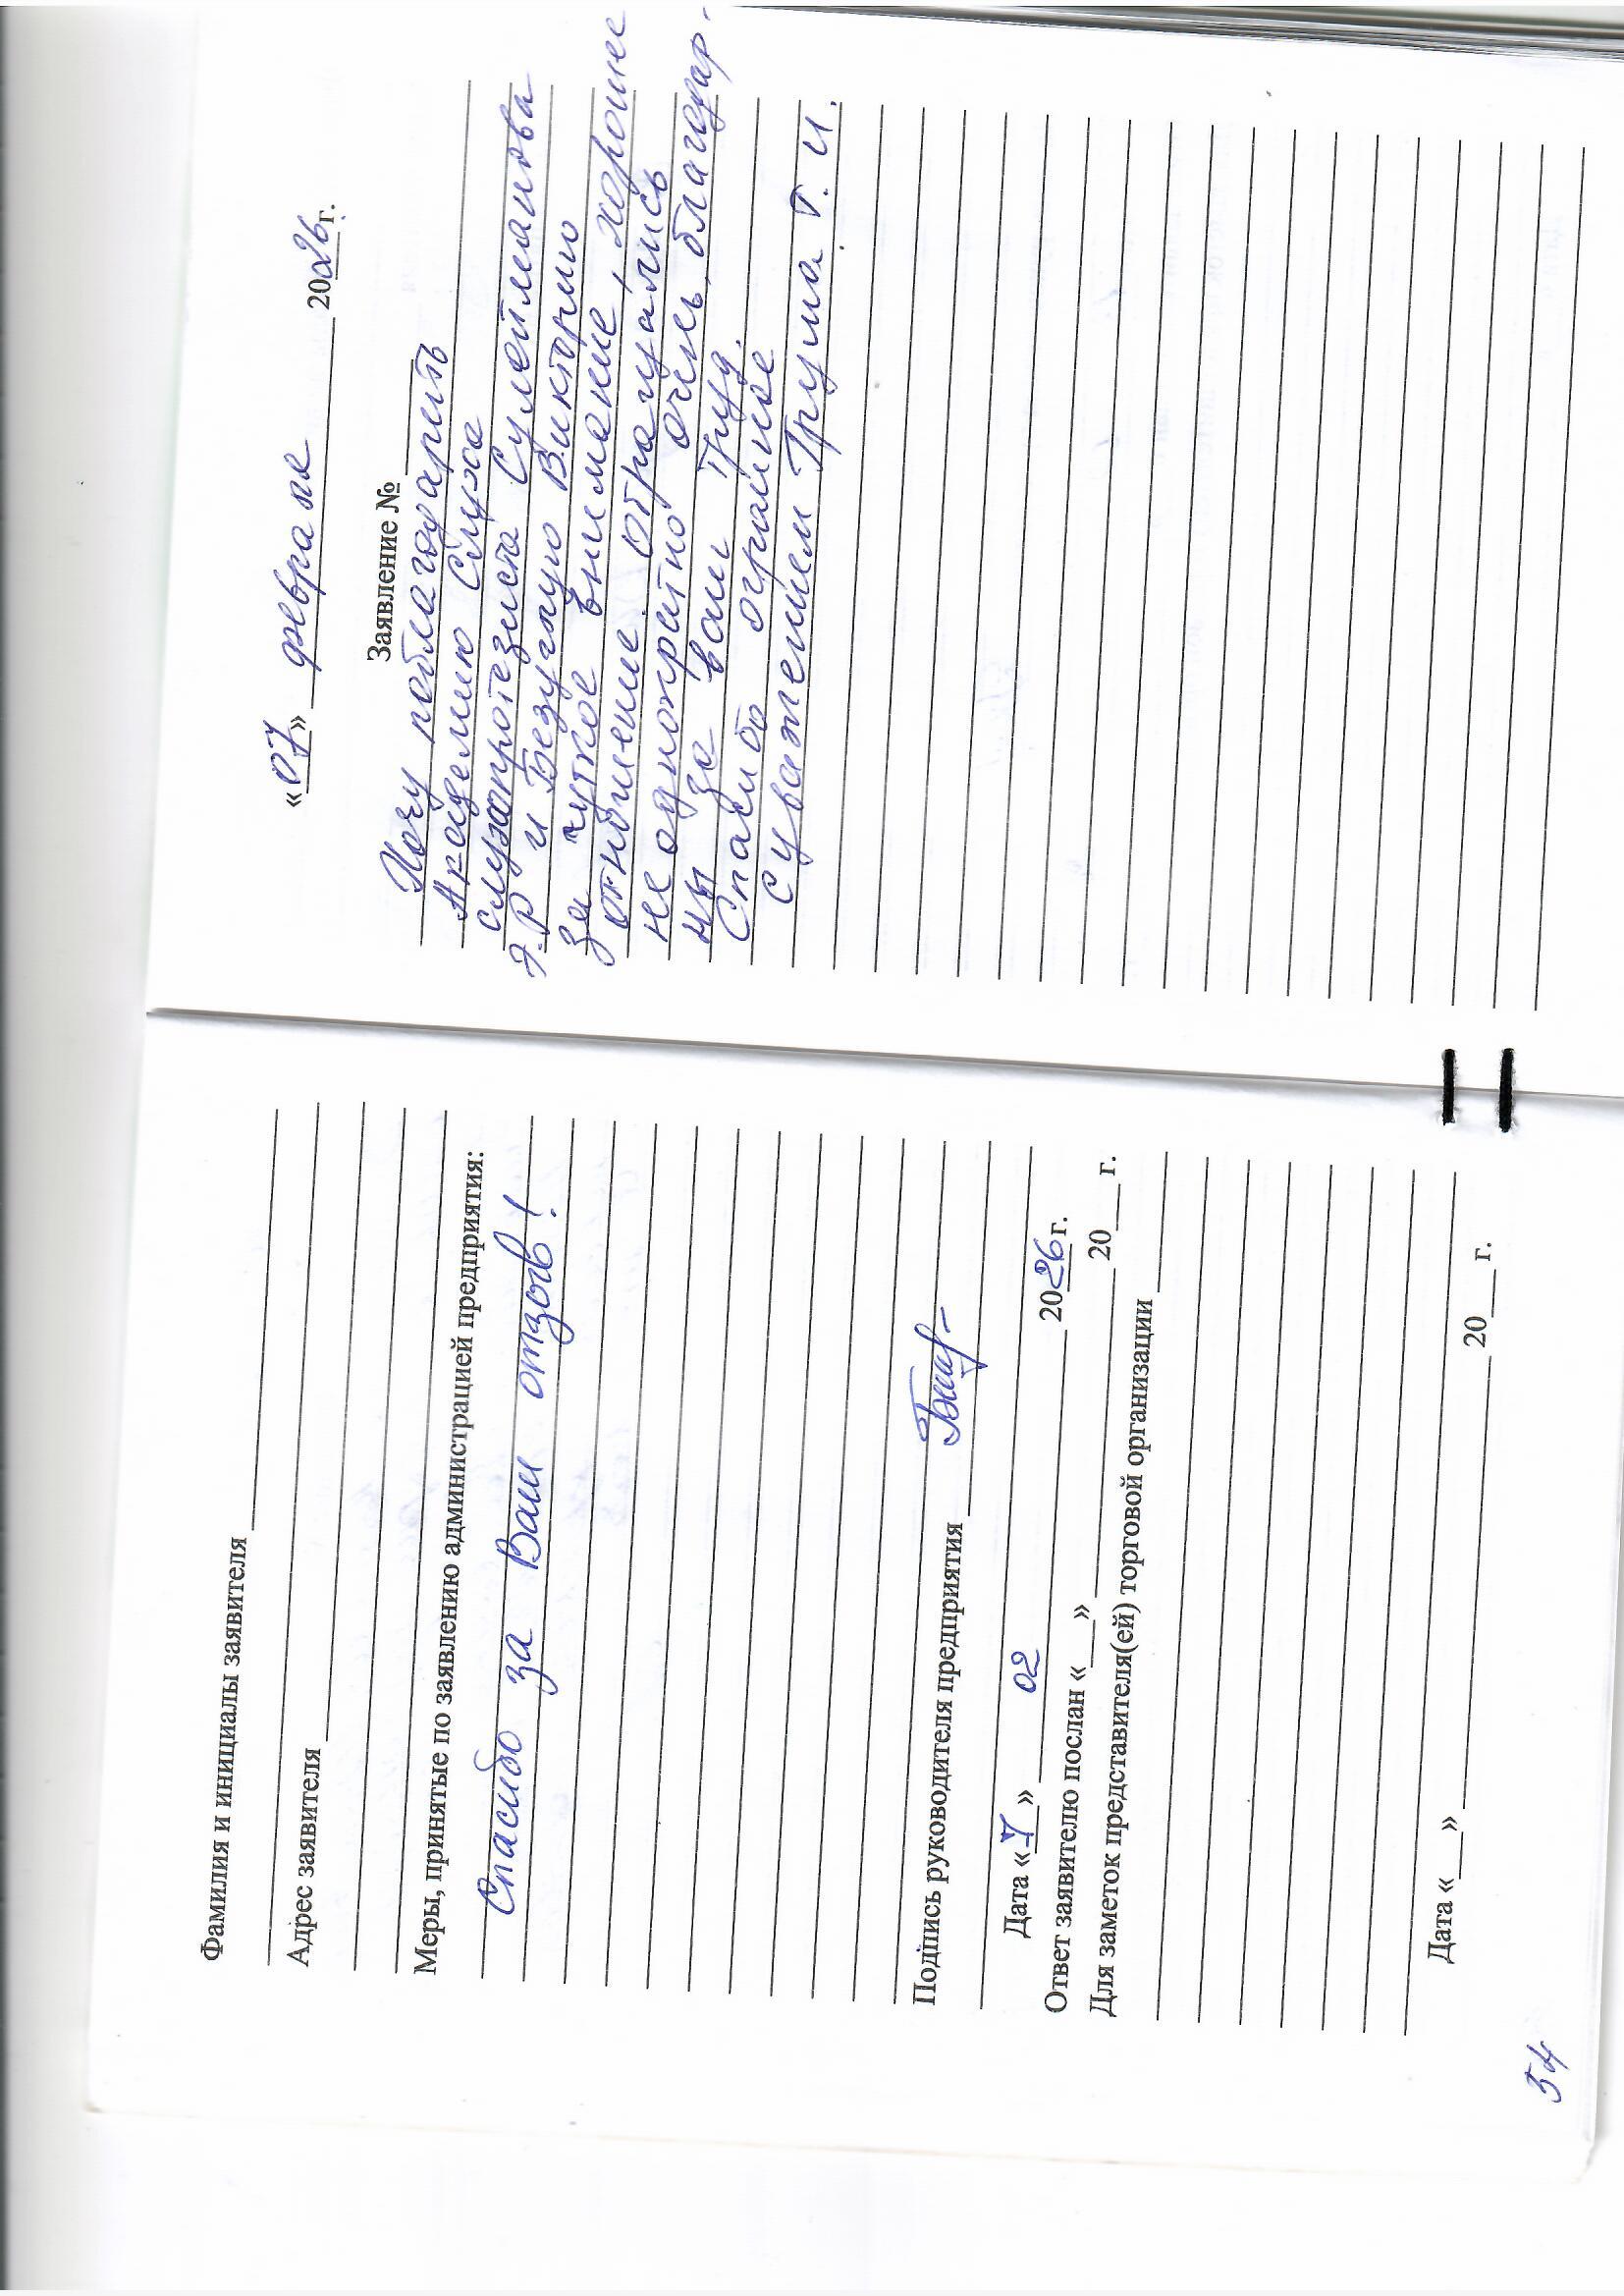 Фамилия и инициалы заявителя
Адрес заявителя
Меры, принятые по заявлению администрацией предприятия:
Спасибо за Ваш отзыв!
Подпись руководителя предприятия
Дата «7» 02 2026 г.
Ответ заявителю послан «___» 20___г.
Для заметок представителя(ей) торговой организации
Дата «___» 20___ г.
54
«07» февраля 2026г.
Заявление №
Хочу поблагодарить
Академию Слуха
слухопротезиста Сулейманова
Э.Р и Безуглую Викторию
за чуткое внимание, хорошие
отношение. Обращались
не однократно очень благодар-
ны за ваш труд.
Спасибо огромное
С уважением Трума Т. И.